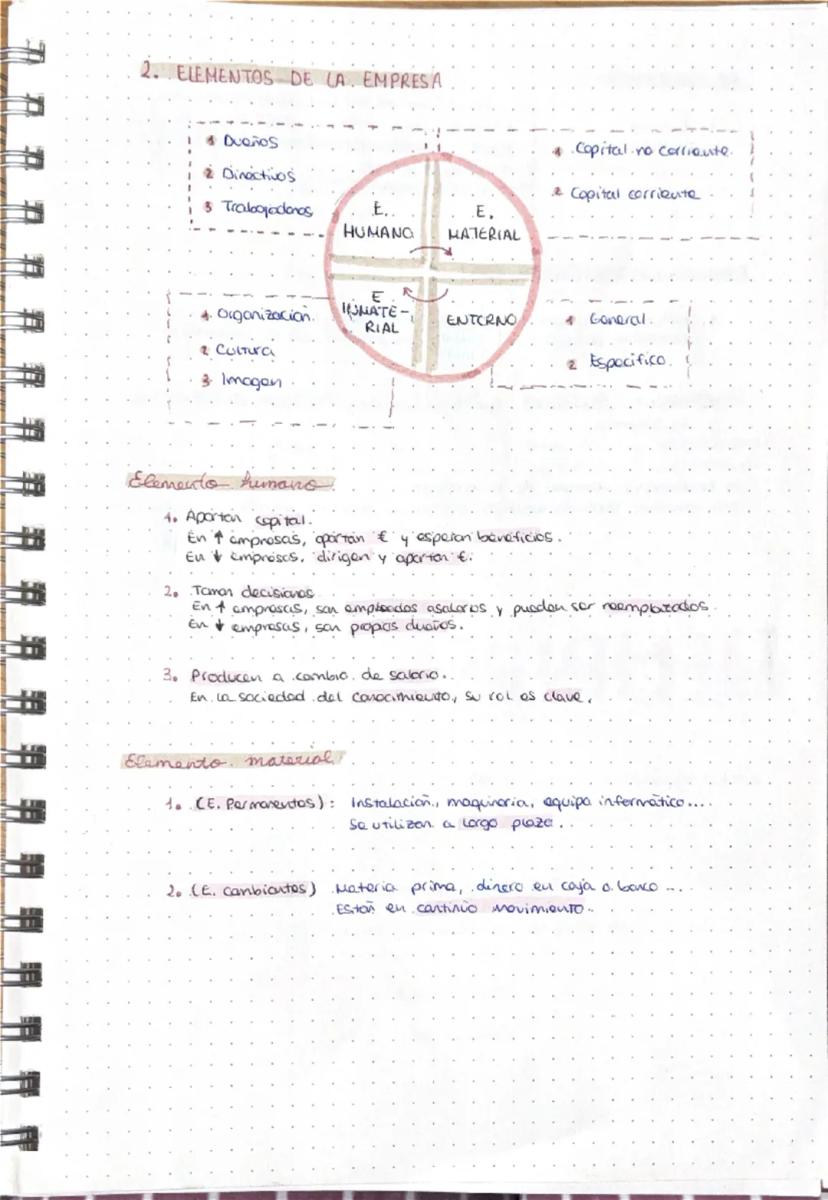 2. ELEMENTOS DE LA EMPRESA
1 Dueños
2 Directivos
3 Trabajadores
1 Capital no corriente.
2 Capital corriente
E. HUMANO
E. MATERIAL
E INMATE-
RIAL
ENTORNO
1. Organización.
2 Cultura
3 Imagen
1 General
2 Específico.
Elemento humano
1. Aportan capital.
En ↑ empresas, aportan € y esperan beneficios.
En ↓ empresas, dirigen y aportan €.
2. Toman decisiones
En ↑ empresas, son empleados asalarios y pueden ser reemplazados.
En ↓ empresas, son propos dueños.
3. Producen a cambio de salario.
En la sociedad del conocimiento, su rol es clave.
Elemento material
1. (E. Permanentes): Instalación, maquinaria, equipo informático....
Se utilizan a largo plazo.
2. (E. cambiantes) Materia prima, dinero en caja o banco ...
Están en continio movimiento.